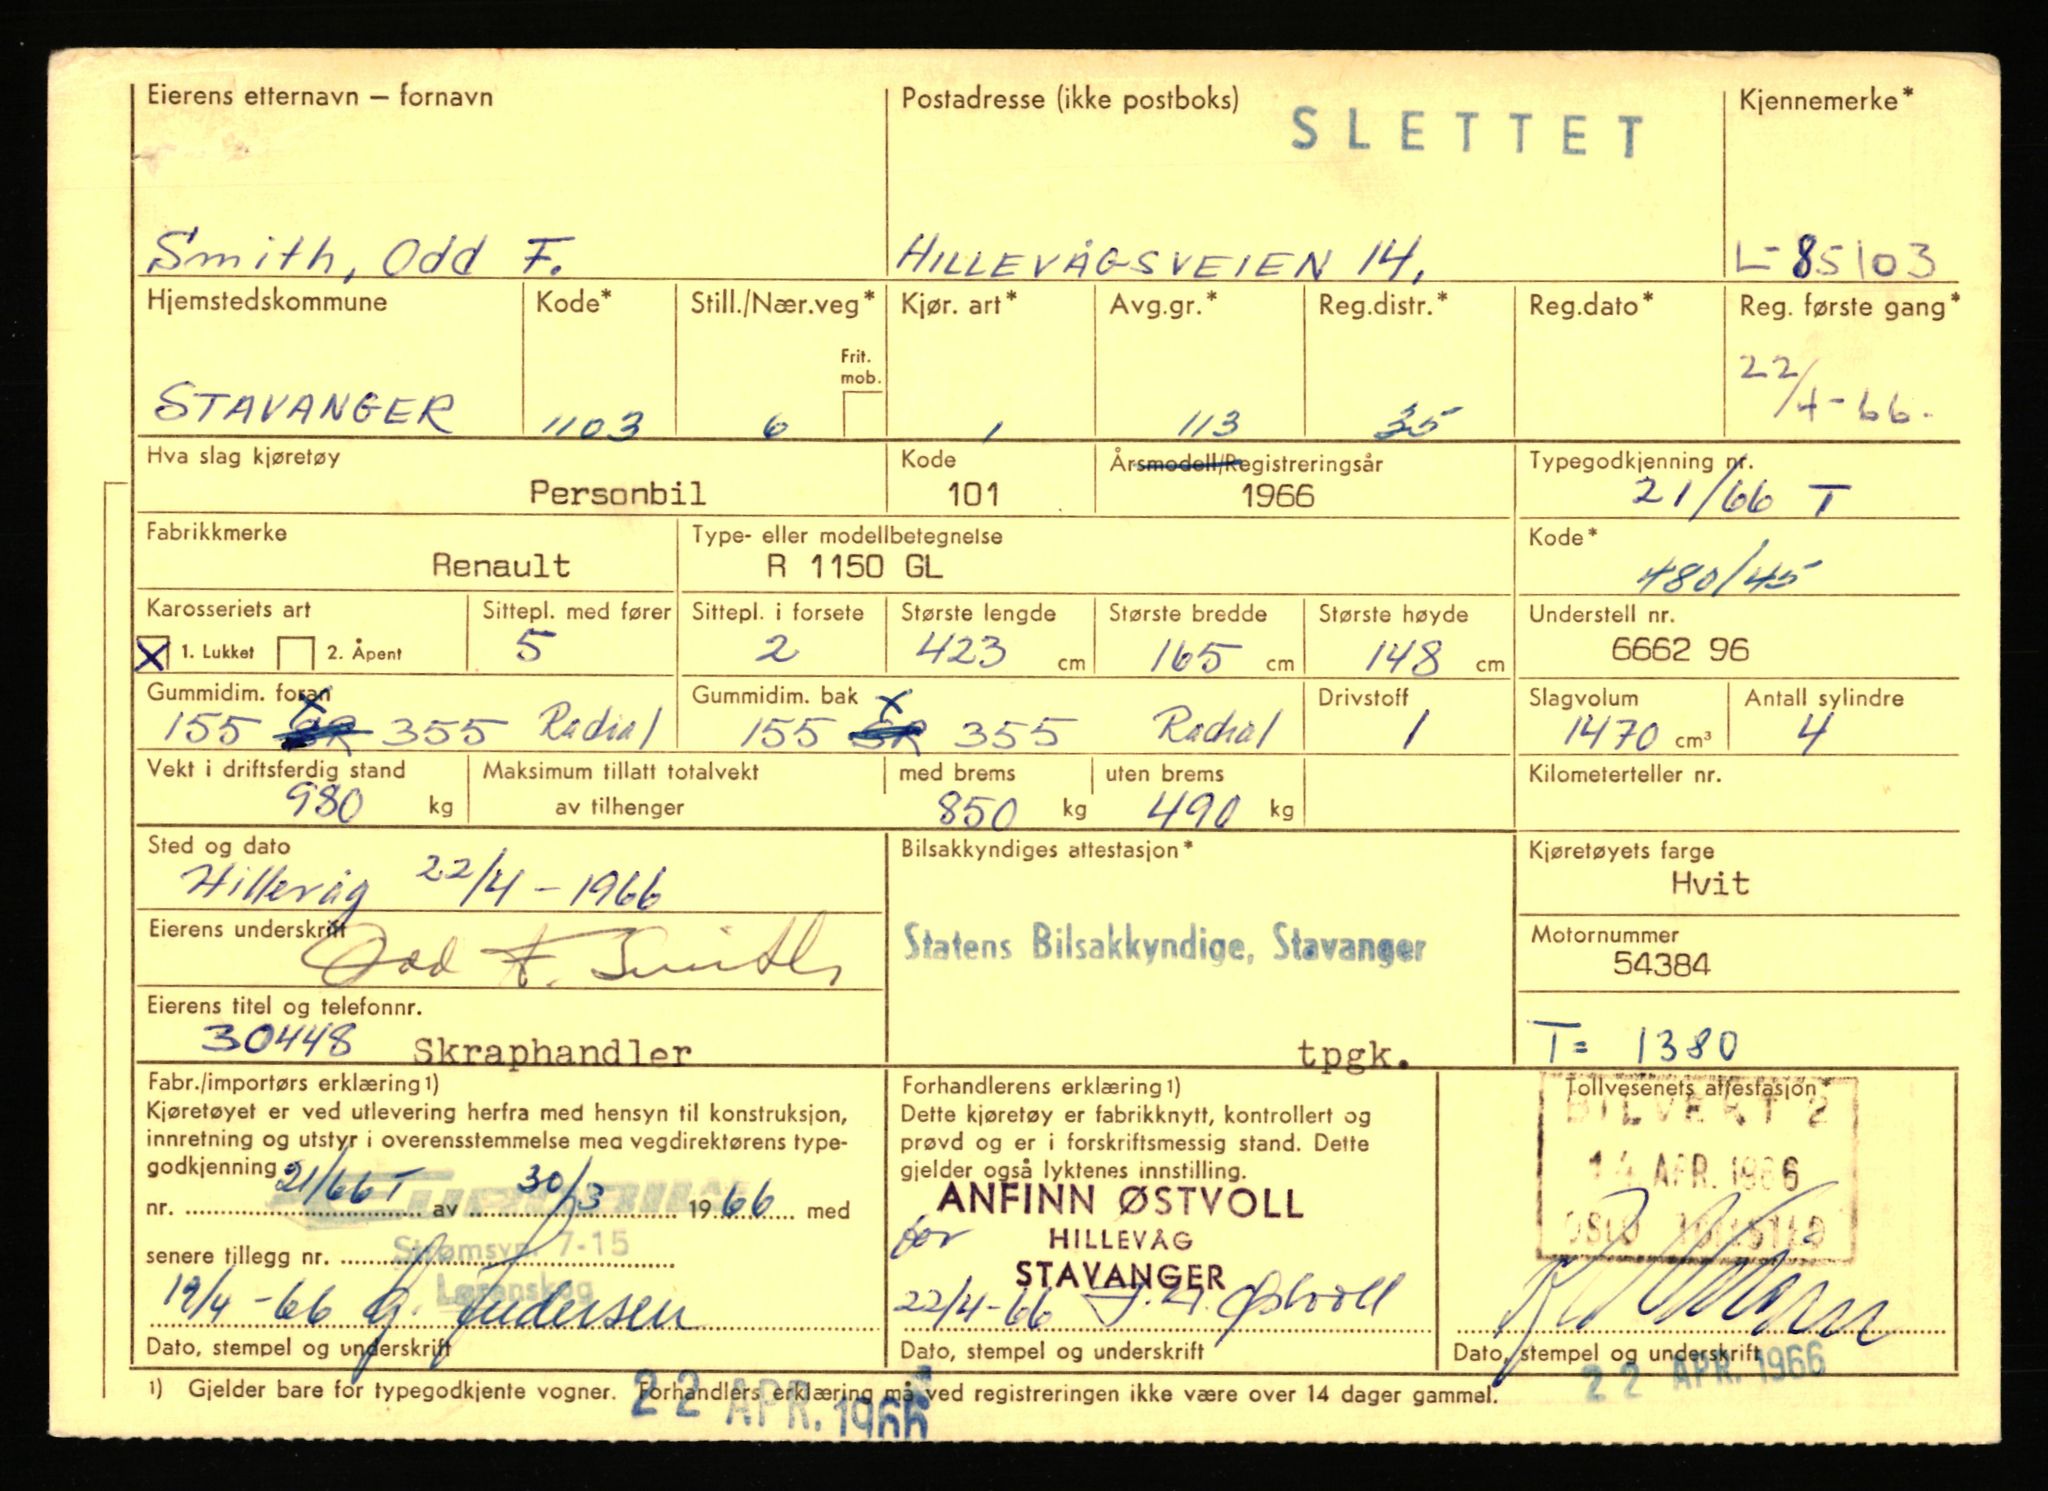 Eierens etternavn – fornavn
Postadresse (ikke postboks)
SLETTET
Kjennemerke*
Smith, Odd F.
HILLEVÅGSVEIEN 14.
L-85103
Hjemstedskommune
Kode*
Still./Nær.veg*
Kjør. art*
Avg.gr.*
Reg.distr.*
Reg.dato*
Reg. første gang*
Frit.
mob.
STAVANGER
1103
6
1
113
35
22/4-66.
Hva slag kjøretøy
Kode
Årsmodell/Registreringsår
Typegodkjenning nr.
Personbil
101
1966
21/66 T
Fabrikkmerke
Type- eller modellbetegnelse
Kode*
Renault
R 1150 GL
480/45
Karosseriets art
Sittepl. med fører
Sittepl. i forsete
Største lengde
Største bredde
Største høyde
Understell nr.
X 1. Lukket
2. Åpent
5
2
423 cm
165 cm
148 cm
6662 96
Gummidim. foran
Gummidim. bak
Drivstoff
Slagvolum
Antall sylindre
155 SR X 355 Radial
155 SR X 355 Radial
1
1470 cm³
4
Vekt i driftsferdig stand
Maksimum tillatt totalvekt
med brems
uten brems
Kilometerteller nr.
980 kg
av tilhenger
850 kg
490 kg
Sted og dato
Bilsakkyndiges attestasjon*
Kjøretøyets farge
Hillevåg 22/4-1966
Hvit
Eierens underskrift
Odd F. Smith
Statens Bilsakkyndige, Stavanger
Motornummer
54384
Eierens titel og telefonnr.
30448 Skraphandler
tpgk.
T= 1380
Fabr./importørs erklæring 1)
Kjøretøyet er ved utlevering herfra med hensyn til konstruksjon,
innretning og utstyr i overensstemmelse med vegdirektørens type-
godkjenning
nr. 21/66T av 30/3 1966 med
Strømsvn. 7-15
senere tillegg nr.
Lørenskog
19/4-66 G. Andersen
Dato, stempel og underskrift
Forhandlerens erklæring 1)
Dette kjøretøy er fabrikknytt, kontrollert og
prøvd og er i forskriftsmessig stand. Dette
gjelder også lyktenes innstilling.
ANFINN ØSTVOLL
for HILLEVÅG
STAVANGER
22/4-66 Østvoll
Dato, stempel og underskrift
Tollvesenets attestasjon*
BILVERT 2
14. APR. 1966
OSLO TOLLSTED
Dato, stempel og underskrift
22 APR. 1966
1) Gjelder bare for typegodkjente vogner. Forhandlers erklæring må ved registreringen ikke være over 14 dager gammel.
22 APR. 1966